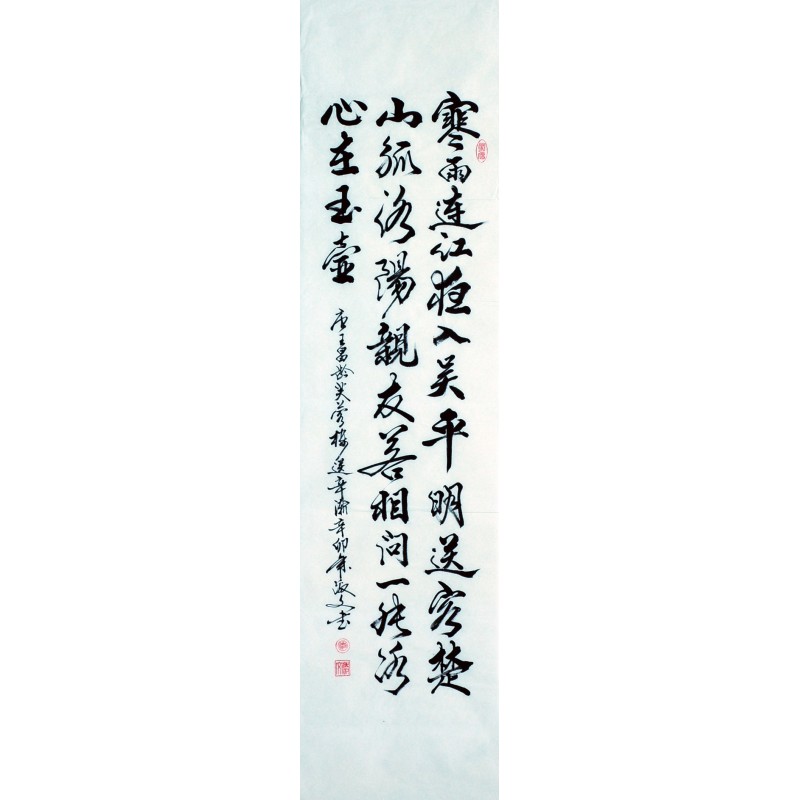 寒雨連江夜入吴平明送客楚
山孤洛陽親友若相问一片冰
心在玉壺
唐王昌龄芙蓉楼送辛渐辛卯年文书